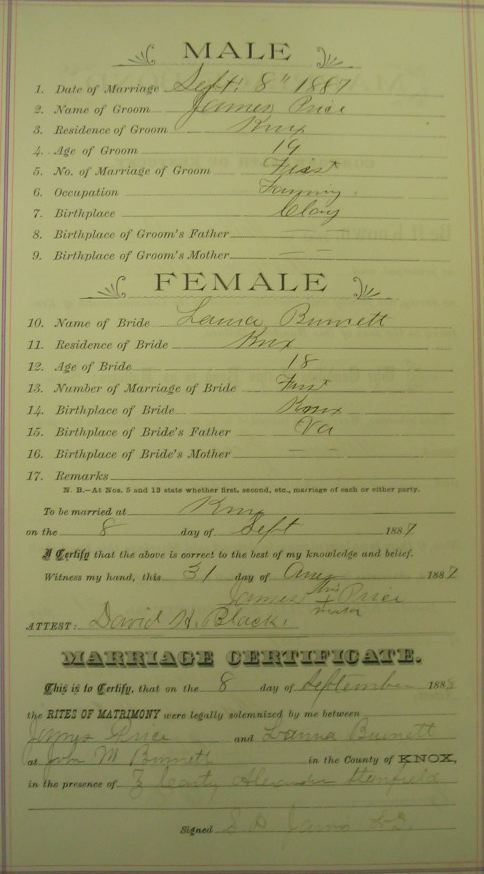 MALE
1. Date of Marriage Sept. 8" 1887
2. Name of Groom James Price
3. Residence of Groom Knox
4. Age of Groom 19
5. No. of Marriage of Groom First
6. Occupation Farming
7. Birthplace Clay
8. Birthplace of Groom's Father — —
9. Birthplace of Groom's Mother — —
FEMALE
10. Name of Bride Laura Burnett
11. Residence of Bride Knx
12. Age of Bride 18
13. Number of Marriage of Bride First
14. Birthplace of Bride Knox
15. Birthplace of Bride's Father Va
16. Birthplace of Bride's Mother — —
17. Remarks
N. B.—At Nos. 5 and 13 state whether first, second, etc., marriage of each or either party.
To be married at Knox
on the 8 day of Sept 1887
I Certify that the above is correct to the best of my knowledge and belief.
Witness my hand, this 31 day of Aug 1887
James his x mark Price
ATTEST: David H. Black.
MARRIAGE CERTIFICATE.
This is to Certify, that on the 8 day of September 188
the RITES OF MATRIMONY were legally solemnized by me between
James Price and Laura Burnett
at John M Burnett in the County of KNOX,
in the presence of Alexander
Signed